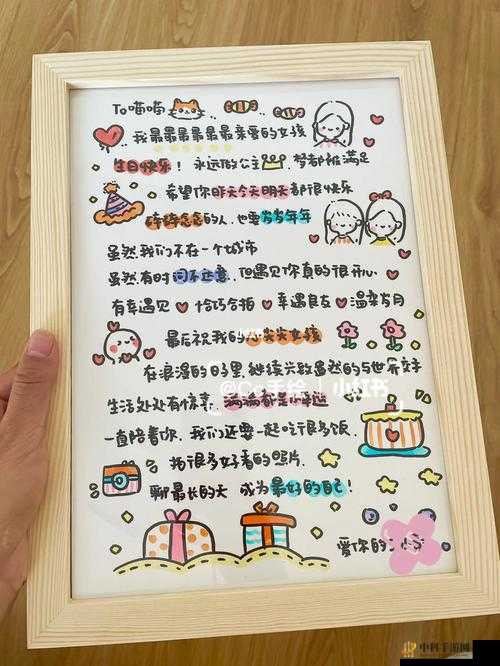 To 喵喵
我最最最最最最亲爱的女孩
生日快乐! 永远做公主 梦都被满足
希望你昨天今天明天都很快乐
的人,也要岁岁年年
虽然我们不在一个城市
虽然有时词不达意,但遇见你真的很开心
有幸遇见 恰巧合拍 幸遇良友 温柔岁月
最后祝我的小尖尖女孩
在浪漫的日子里,继续兴致盎然的与世界交手
生活处处有惊喜 满满都是小幸运
@Cc手绘 小红书
一直陪着你,我们还要一起吃很多饭,
拍很多好看的照片,
聊最长的天 成为最好的自己!
爱你的
中科手游网